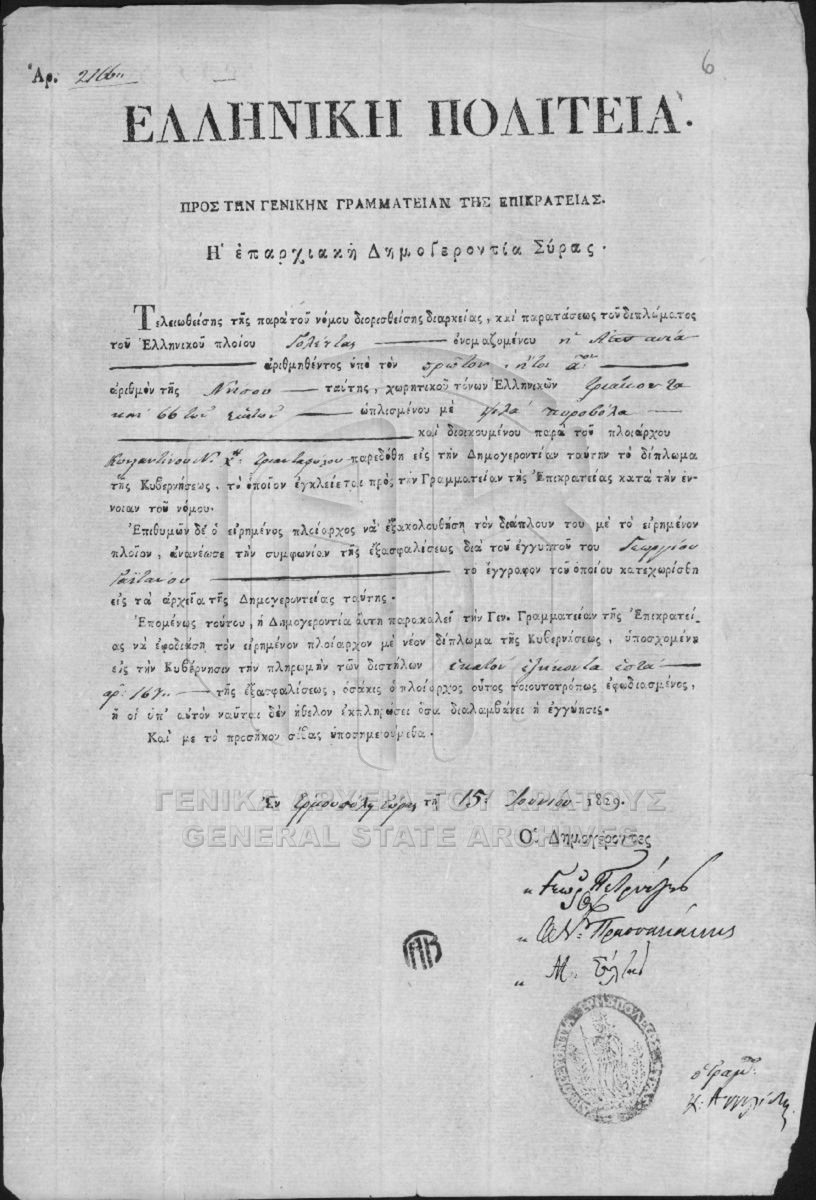 Ἀρ. 2166
6
ΕΛΛΗΝΙΚΗ ΠΟΛΙΤΕΙΑ.
ΠΡΟΣ ΤΗΝ ΓΕΝΙΚΗΝ ΓΡΑΜΜΑΤΕΙΑΝ ΤΗΣ ΕΠΙΚΡΑΤΕΙΑΣ.
Η' ἐπαρχιακὴ Δημογεροντία Σύρας.
Τελειωθείσης τῆς παρὰ τοῦ νόμου διορισθείσης διαρκείας, καὶ παρατάσεως τοῦ διπλώματος
τοῦ Ἑλληνικοῦ πλοίου Γολέττας ὀνομαζομένου ἡ
ἀριθμηθέντος ὑπὸ τὸν πρῶτον ἤτοι
ἀριθμὸν τῆς Νήσου ταύτης, χωρητικοῦ τόνων Ἑλληνικῶν τριάκοντα
καὶ 66 ὡπλισμένου μὲ ψιλὰ πυροβόλα
καὶ διοικουμένου παρὰ τοῦ πλοιάρχου
Κωνσταντίνου Ν. Χ'' Τριανταφύλου παρεδόθη εἰς τὴν Δημογεροντίαν ταύτην τὸ δίπλωμα
τῆς Κυβερνήσεως, τὸ ὁποῖον ἐγκλείεται πρὸς τὴν Γραμματείαν τῆς Ἐπικρατείας κατὰ τὴν ἔν-
νοιαν τοῦ νόμου.
Ἐπιθυμῶν δὲ ὁ εἰρημένος πλοίαρχος νὰ ἐξακολουθήση τὸν διάπλουν του μὲ τὸ εἰρημένον
πλοῖον, ἀνανέωσε τὴν συμφωνίαν τῆς ἐξασφαλίσεως διὰ τοῦ ἐγγυητοῦ του Γεωργίου
τὸ ἔγγραφον τοῦ ὁποίου κατεχωρίσθη
εἰς τὰ ἀρχεῖα τῆς Δημογεροντείας ταύτης.
Ἑπομένως τούτου, ἡ Δημογεροντία αὕτη παρακαλεῖ τὴν Γεν. Γραμματείαν τῆς Ἐπικρατεί-
ας νὰ ἐφοδιάση τὸν εἰρημένον πλοίαρχον μὲ νέον δίπλωμα τῆς Κυβερνήσεως, ὑποσχομένη
εἰς τὴν Κυβέρνησιν τὴν πληρωμὴν τῶν διστήλων ἑκατὸν ἑξήκοντα ἑπτὰ
ἀρ: 167 τῆς ἐξασφαλίσεως, ὁσάκις ὁ πλοίαρχος οὗτος τοιουτοτρόπως ἐφωδιασμένος,
ἢ οἱ ὑπ' αὐτὸν ναῦται δὲν ἤθελον ἐκπληρώσει ὅσα διαλαμβάνει ἡ ἐγγύησις.
Καὶ με τὸ προσῆκον σέβας ὑποσημειούμεθα.
Ἐν Ἑρμουπόλη Σύρας τῇ 15: Ἰουνίου 1829.
ΓΕΝΙΚΑ ΑΡΧΕΙΑ ΤΟΥ ΚΡΑΤΟΥΣ
GENERAL STATE ARCHIVES
Οἱ Δημογέροντες
Γεώρ
Μ:
ὁ Γραμ:
Κ: